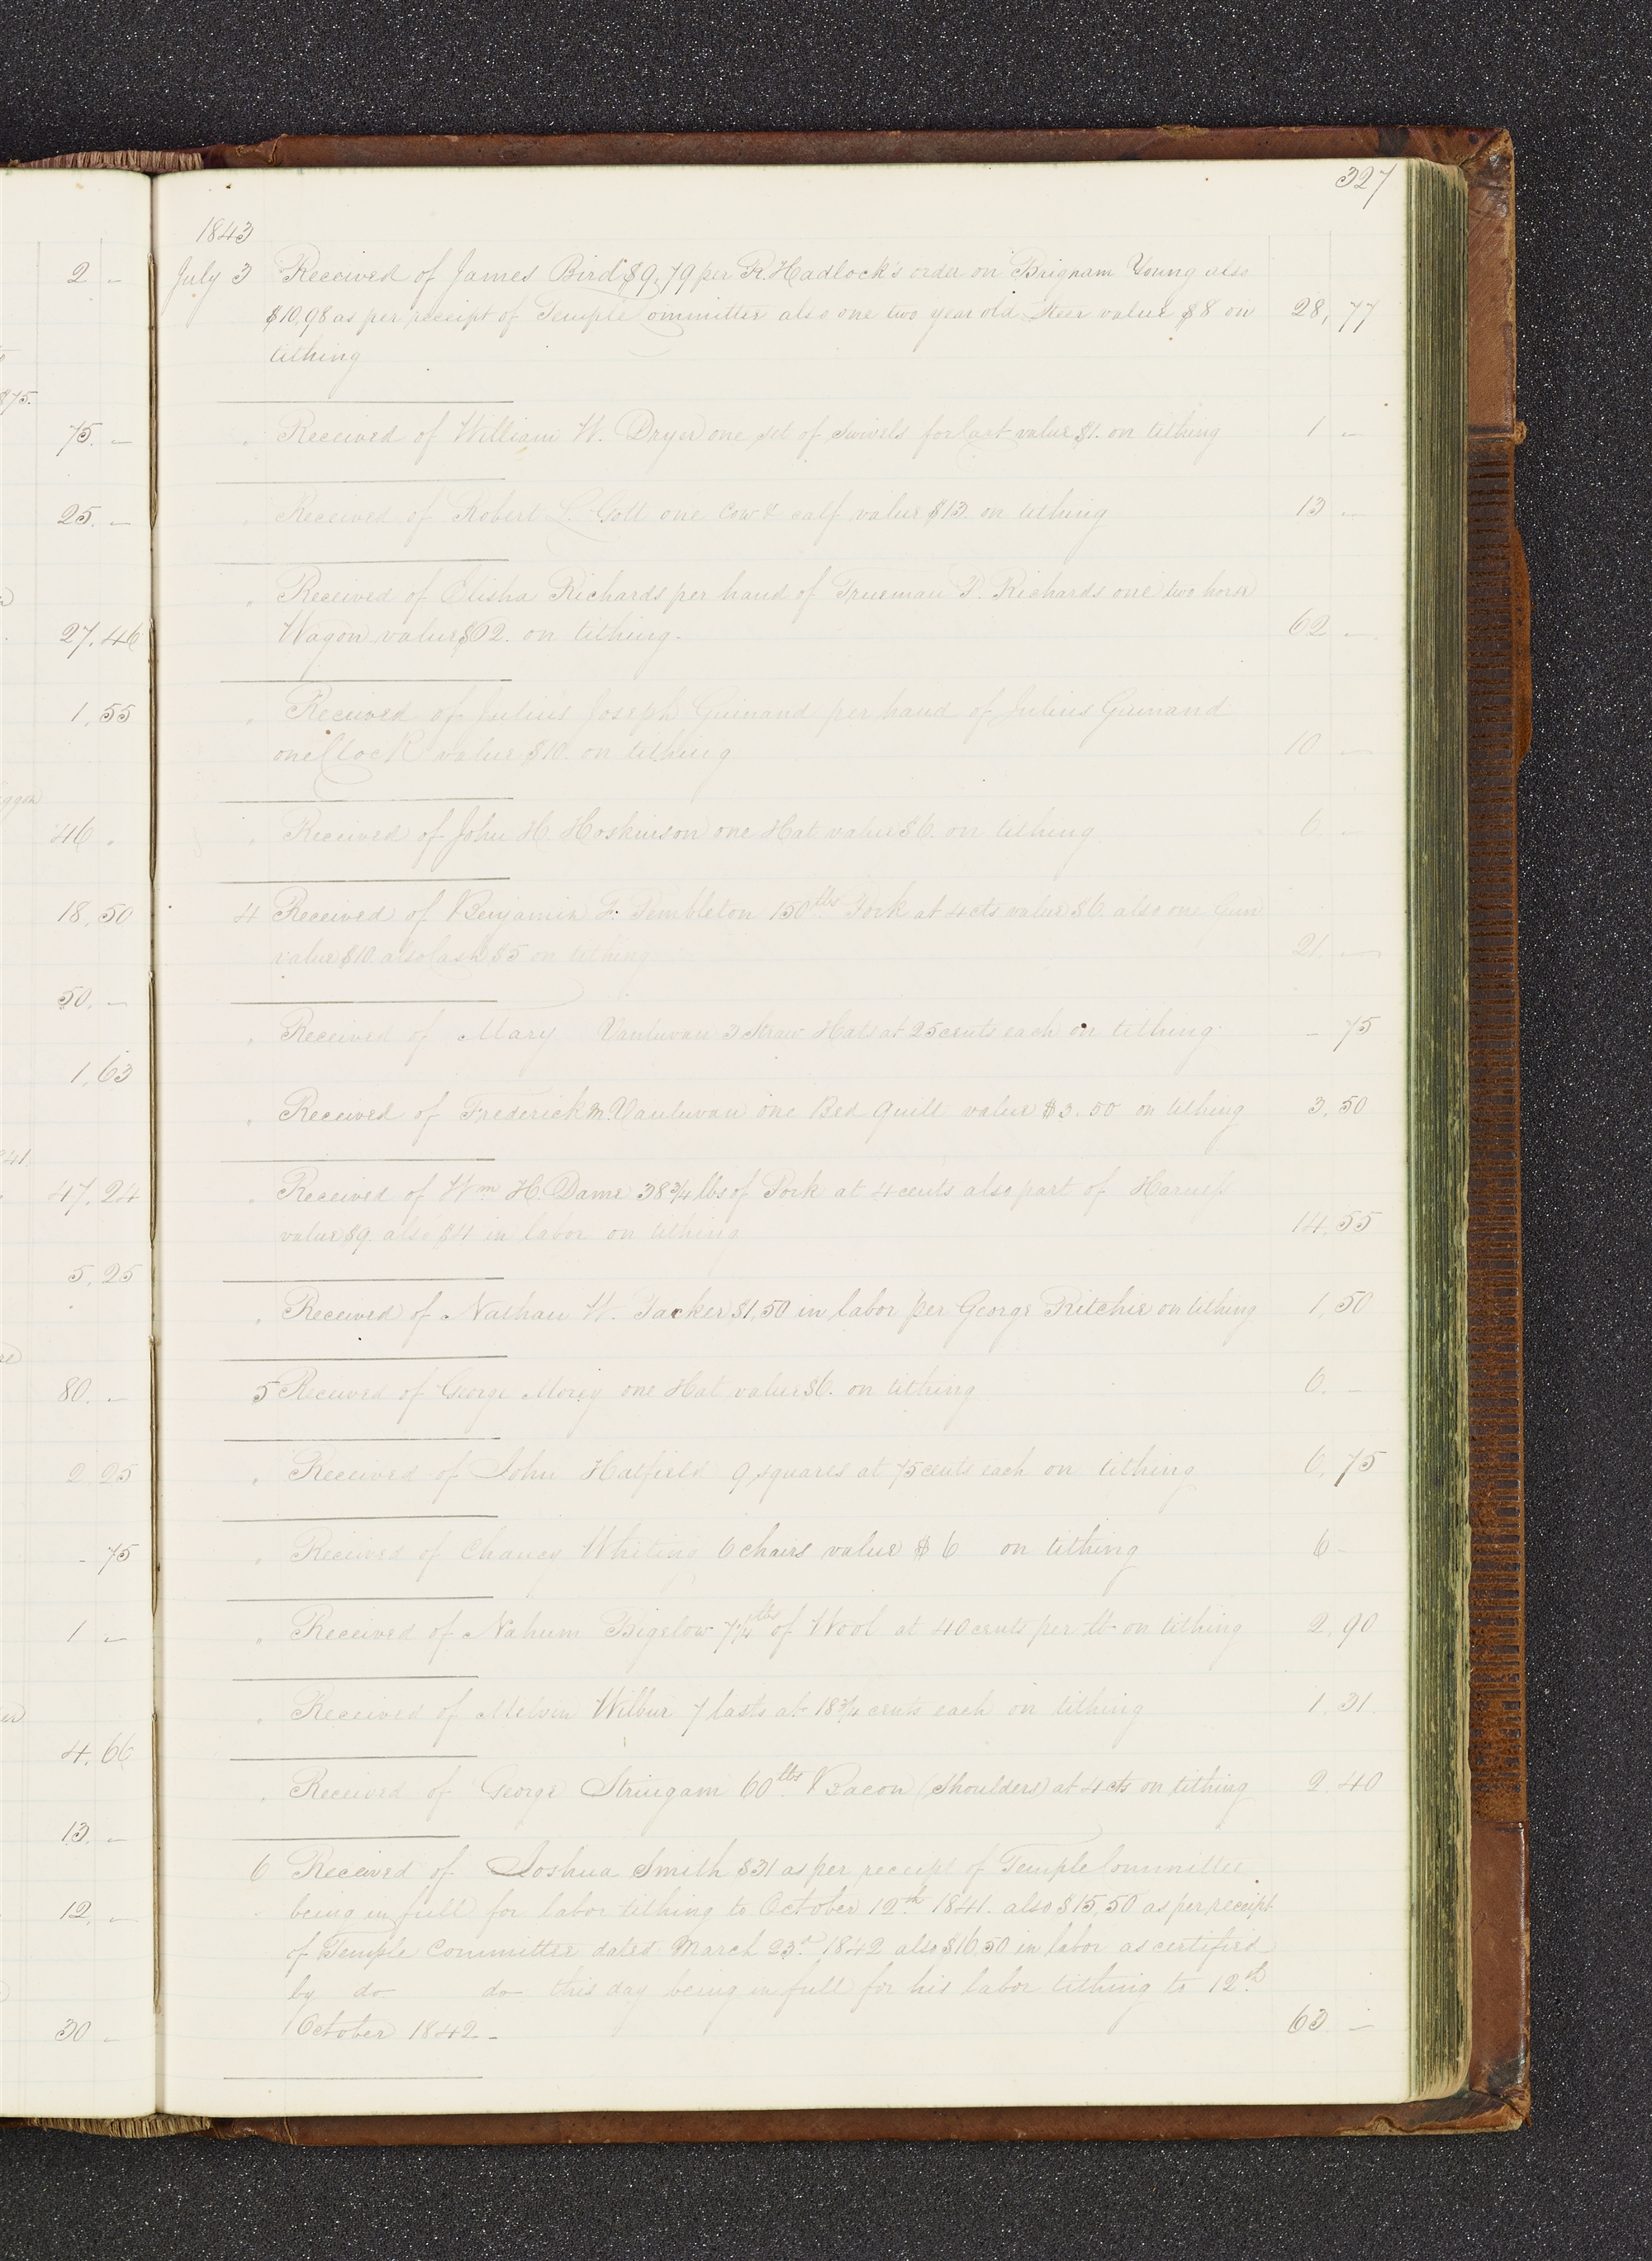 327
1843
July 3 Received of James Bird $9,79 per R. Hadlock's order on Brigham Young also
$10,98 as per receipt of Temple Committee also one two year old Steer value $8 on 28,77
tithing
" Received of William W. Dryer one set of swivels for Cart value $1. on tithing 1 —
" Received of Robert L. Gott one Cow & calf value $13. on tithing 13 —
" Received of Elisha Richards per hand of Trueman P. Richards one two horse
Wagon value $62. on tithing. 62 —
" Received of Julius Joseph Guinand per hand of Julius Guinand
one Clock value $10. on tithing 10 —
" Received of John H. Hoskinson one Hat value $6. on tithing 6 —
4 Received of Benjamin F. Pembleton 150 lbs Pork at 4 cts value $6. also one Gun
value $10. also Cash $5 on tithing 21. —
" Received of Mary Vanluvan 3 Straw Hats at 25 cents each on tithing. - 75
" Received of Frederick M. Vanluvan one Bed quilt value $3.50 on tithing 3,50
" Received of Wm H. Dame 38 3/4 lbs of Pork at 4 cents also part of Harness
value $9. also $4 in labor on tithing 14,55
" Received of Nathan W. Packer $1,50 in labor per George Ritchie on tithing 1,50
5 Received of George Morey one Hat value $6. on tithing 6. —
" Received of John Hatfield 9 squares at 75 cents each on tithing 6,75
" Received of Chancy Whiting 6 chairs value $6 on tithing 6 -
" Received of Nahum Bigelow 7 1/4 lbs of Wool at 40 cents per lb on tithing 2,90
" Received of Melvin Wilbur 7 lasts at 18 3/4 cents each on tithing 1.31.
" Received of George Stringam 60 lbs Bacon (Shoulders) at 4 cts on tithing 2.40
6 Received of Joshua Smith $31 as per receipt of Temple Committee
being in full for labor tithing to October 12th 1841. also $15,50 as per receipt
of Temple Committee dated March 23d 1842 also $16,50 in labor as certified
by do do this day being in full for his labor tithing to 12th
October 1842 - 63 —
2 —
$75.
75. —
25. —
27.46
1,55
46 .
18,50
50. —
1,63
47.24
5,25
80. —
2 25
- 75
1 —
4.66
13. —
12. —
30 —